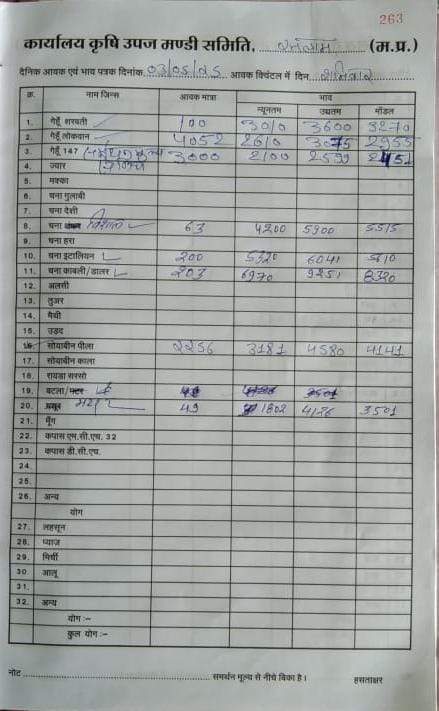 263
कार्यालय कृषि उपज मण्डी समिति, रतलाम (म.प्र.)
दैनिक आवक एवं भाव पत्रक दिनांक 03/05/25 आवक क्विंटल में दिन शनिवार
क्र. नाम जिन्स आवक मात्रा भाव
न्यूनतम उच्चतम मॉडल
1. गेहूँ शरबती 100 3010 3600 3270
2. गेहूँ लोकवान 4052 2610 3075 2955
3. गेहूँ 147 3000 2100 2599 2451
4. ज्वार
5. मक्का
6. चना गुलाबी
7. चना देशी
8. चना विशाल 63 4200 5900 5515
9. चना हरा
10. चना इटालियन 200 5320 6041 5610
11. चना काबली/डालर 203 6970 9251 8320
12. अलसी
13. तुअर
14. मैथी
15. उड़द
16. सोयाबीन पीला 2256 3181 4580 4141
17. सोयाबीन काला
18. रायडा सरसो
19. बटला/मटर
20. मटर 49 1802 4126 3501
21. मूँग
22. कपास एम.सी.एच. 32
23. कपास डी.सी.एच.
24.
25.
26. अन्य
योग
27. लहसून
28. प्याज
29. मिर्ची
30 आलू
31.
32. अन्य
योग :-
कुल योग :-
नोट समर्थन मूल्य से नीचे बिका है। हस्ताक्षर